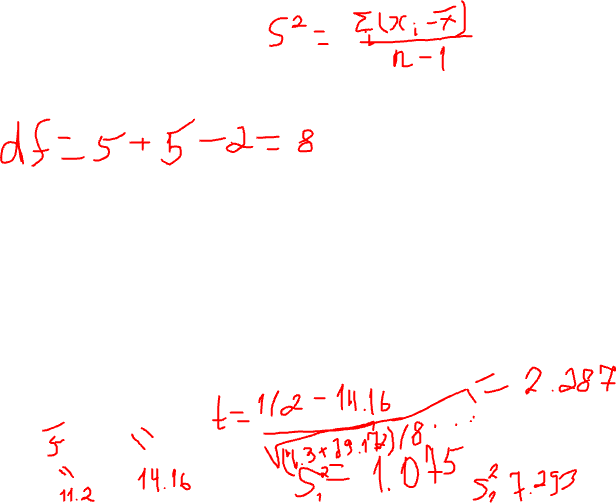 S² = Σ(xᵢ - x̄) / n - 1
df = 5 + 5 - 2 = 8
t = 11.2 - 14.16 / √( .3 + 29.172)/8 .... = 2.287
5
11.2 14.16 S₁² = 1.075 S₂² 7.293